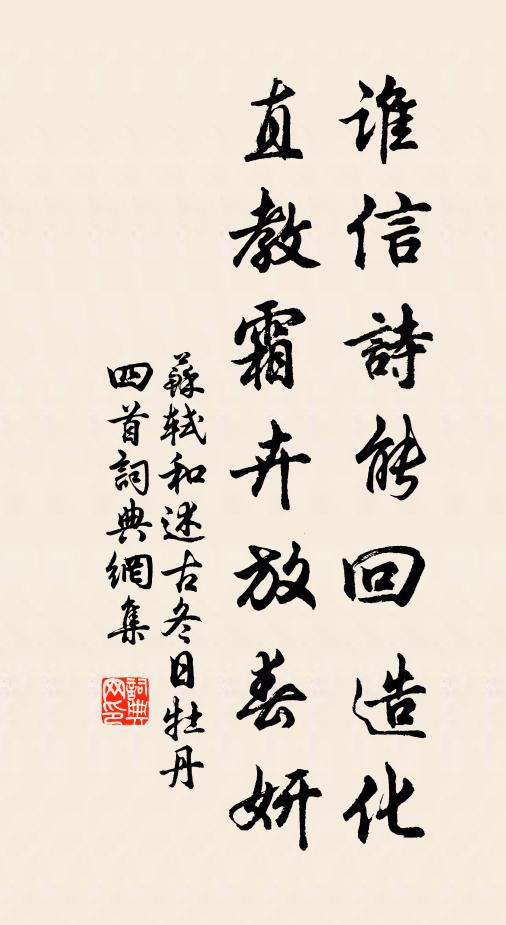 誰信詩能回造化
直教霜卉放春妍
蘇軾和述古冬日牡丹
四首詞典網集
詞典
网印